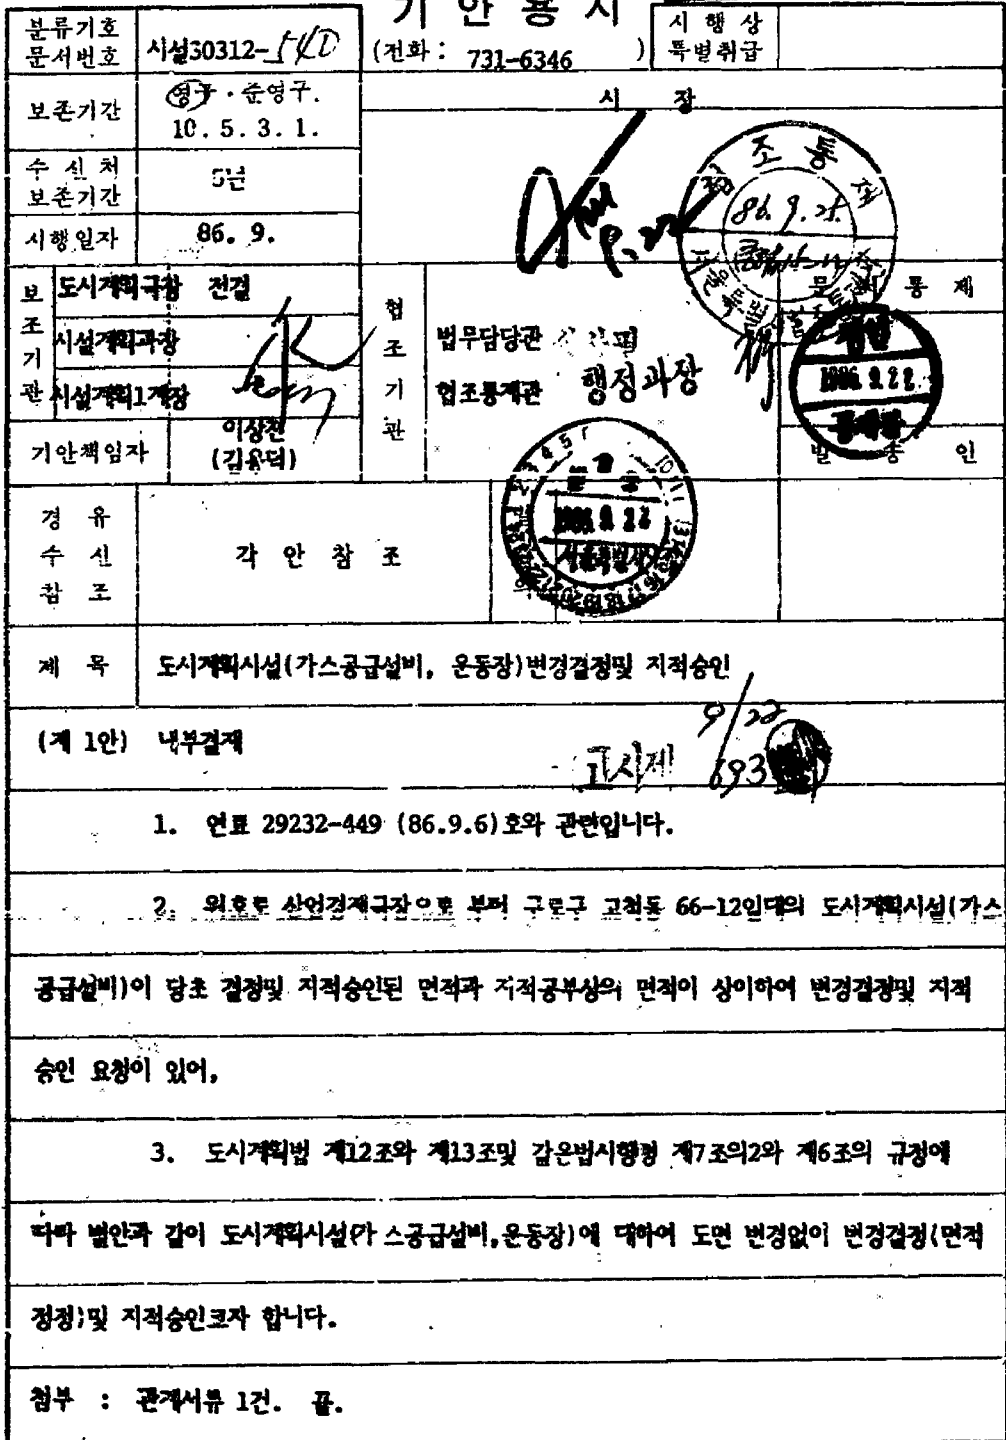 기 안 용 지
분류기호
문서번호
시설30312-540
(전화 : 731-6346 )
시 행 상
특별취급
보존기간
영구 · 준영구.
10. 5. 3. 1.
시 장
수 신 처
보존기간
5년
시행일자
86. 9.
조 통
86. 9. 25.
보 조 기 관
도시계획국장 전결
시설계획과장
시설계획1계장
협 조 기 관
법무담당관
협조통제관 행정과장
문 서 통 제
1986. 9. 22
기안책임자
이상천
(김용덕)
발 송 인
1986. 9. 22
서울특별시
경 유
수 신
참 조
각 안 참 조
제 목
도시계획시설(가스공급설비, 운동장)변경결정및 지적승인
(제 1안) 내부결재
9/22
고시제 693
1. 연표 29232-449 (86.9.6)호와 관련입니다.
2. 위호로 산업경제국장으로 부터 구로구 고척동 66-12일대의 도시계획시설(가스
공급설비)이 당초 결정및 지적승인된 면적과 지적공부상의 면적이 상이하여 변경결정및 지적
승인 요청이 있어,
3. 도시계획법 제12조와 제13조및 같은법시행령 제7조의2와 제6조의 규정에
따라 별안과 같이 도시계획시설(가 스공급설비,운동장)에 대하여 도면 변경없이 변경결정(면적
정정)및 지적승인코자 합니다.
첨부 : 관계서류 1건. 끝.